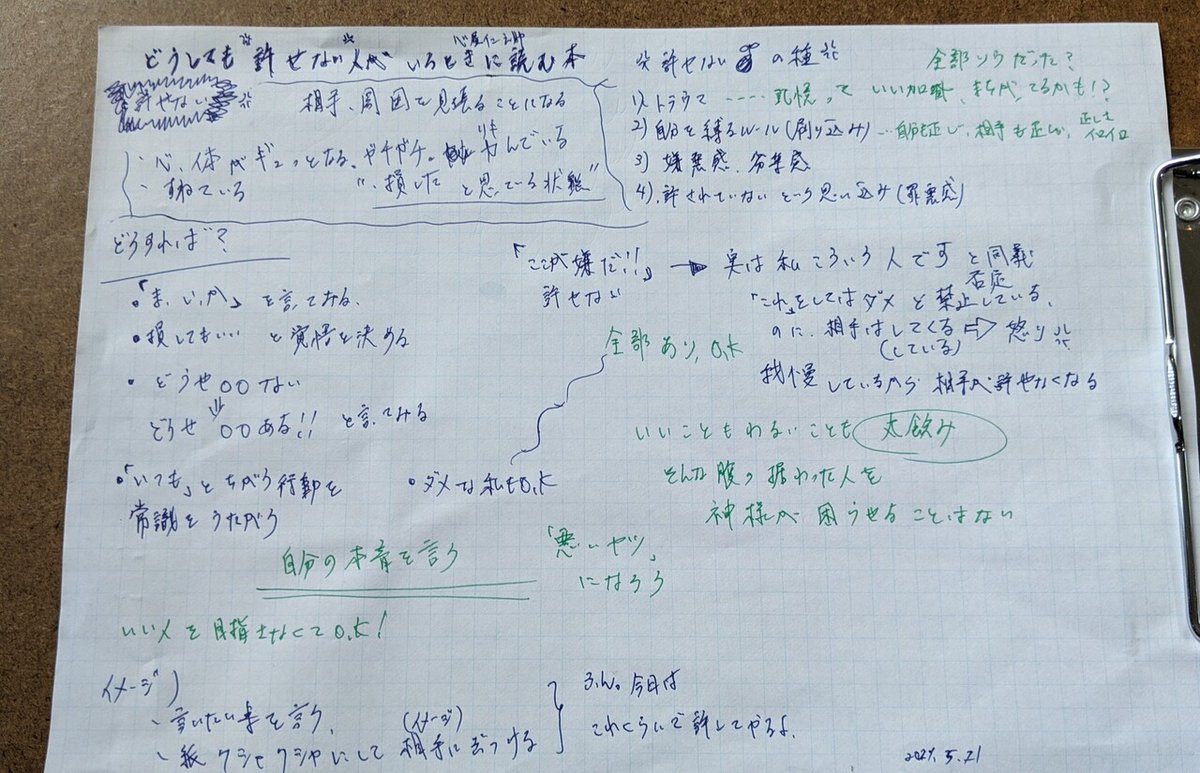 心屋仁之助
どうしても"許せない"人がいるときに読む本
許せない
相手、周囲を見張ることになる
・心、体がギュッとなる。ガチガチ。力んでいる
りき
・すねている
"損した と思っている状態"
※許せない の種
全部ソウだった?
1)トラウマ ‥‥記憶って いい加減、まちがってるかも!?
2)自分を縛るルール(刷り込み)…自分も正しい、相手も正しい、正しさイロイロ
3)嫌悪感、劣等感
4)許されていないという思い込み(罪悪感)
どうすれば?
・「ま、いっか」と言ってみる、
・損してもいい と覚悟を決める
・どうせ〇〇ない
どうせ〇〇ある!! と言ってみる
・「いつも」とちがう行動を
常識をうたがう
・ダメな私もO.K
全部あり、O.K
「ここが嫌だ!!」→ 実は私こういう人です と同義
許せない
否定
「これ」をしてはダメ と禁止している、
のに、相手はしてくる ⇨ 怒り
(している)
我慢しているから 相手が許せなくなる
いいこともわるいことも 丸飲み
そんな腹の据わった人を
神様が困らせることはない
自分の本音を言う
「悪いヤツ」
になろう
いい人を目指さなくてO.K!
イメージ)
・言いたい事を言う、
・紙クシャクシャにして 相手にぶつける
(イメージ)
ふん。今日は
これくらいで許してやるよ、
2021.5.21